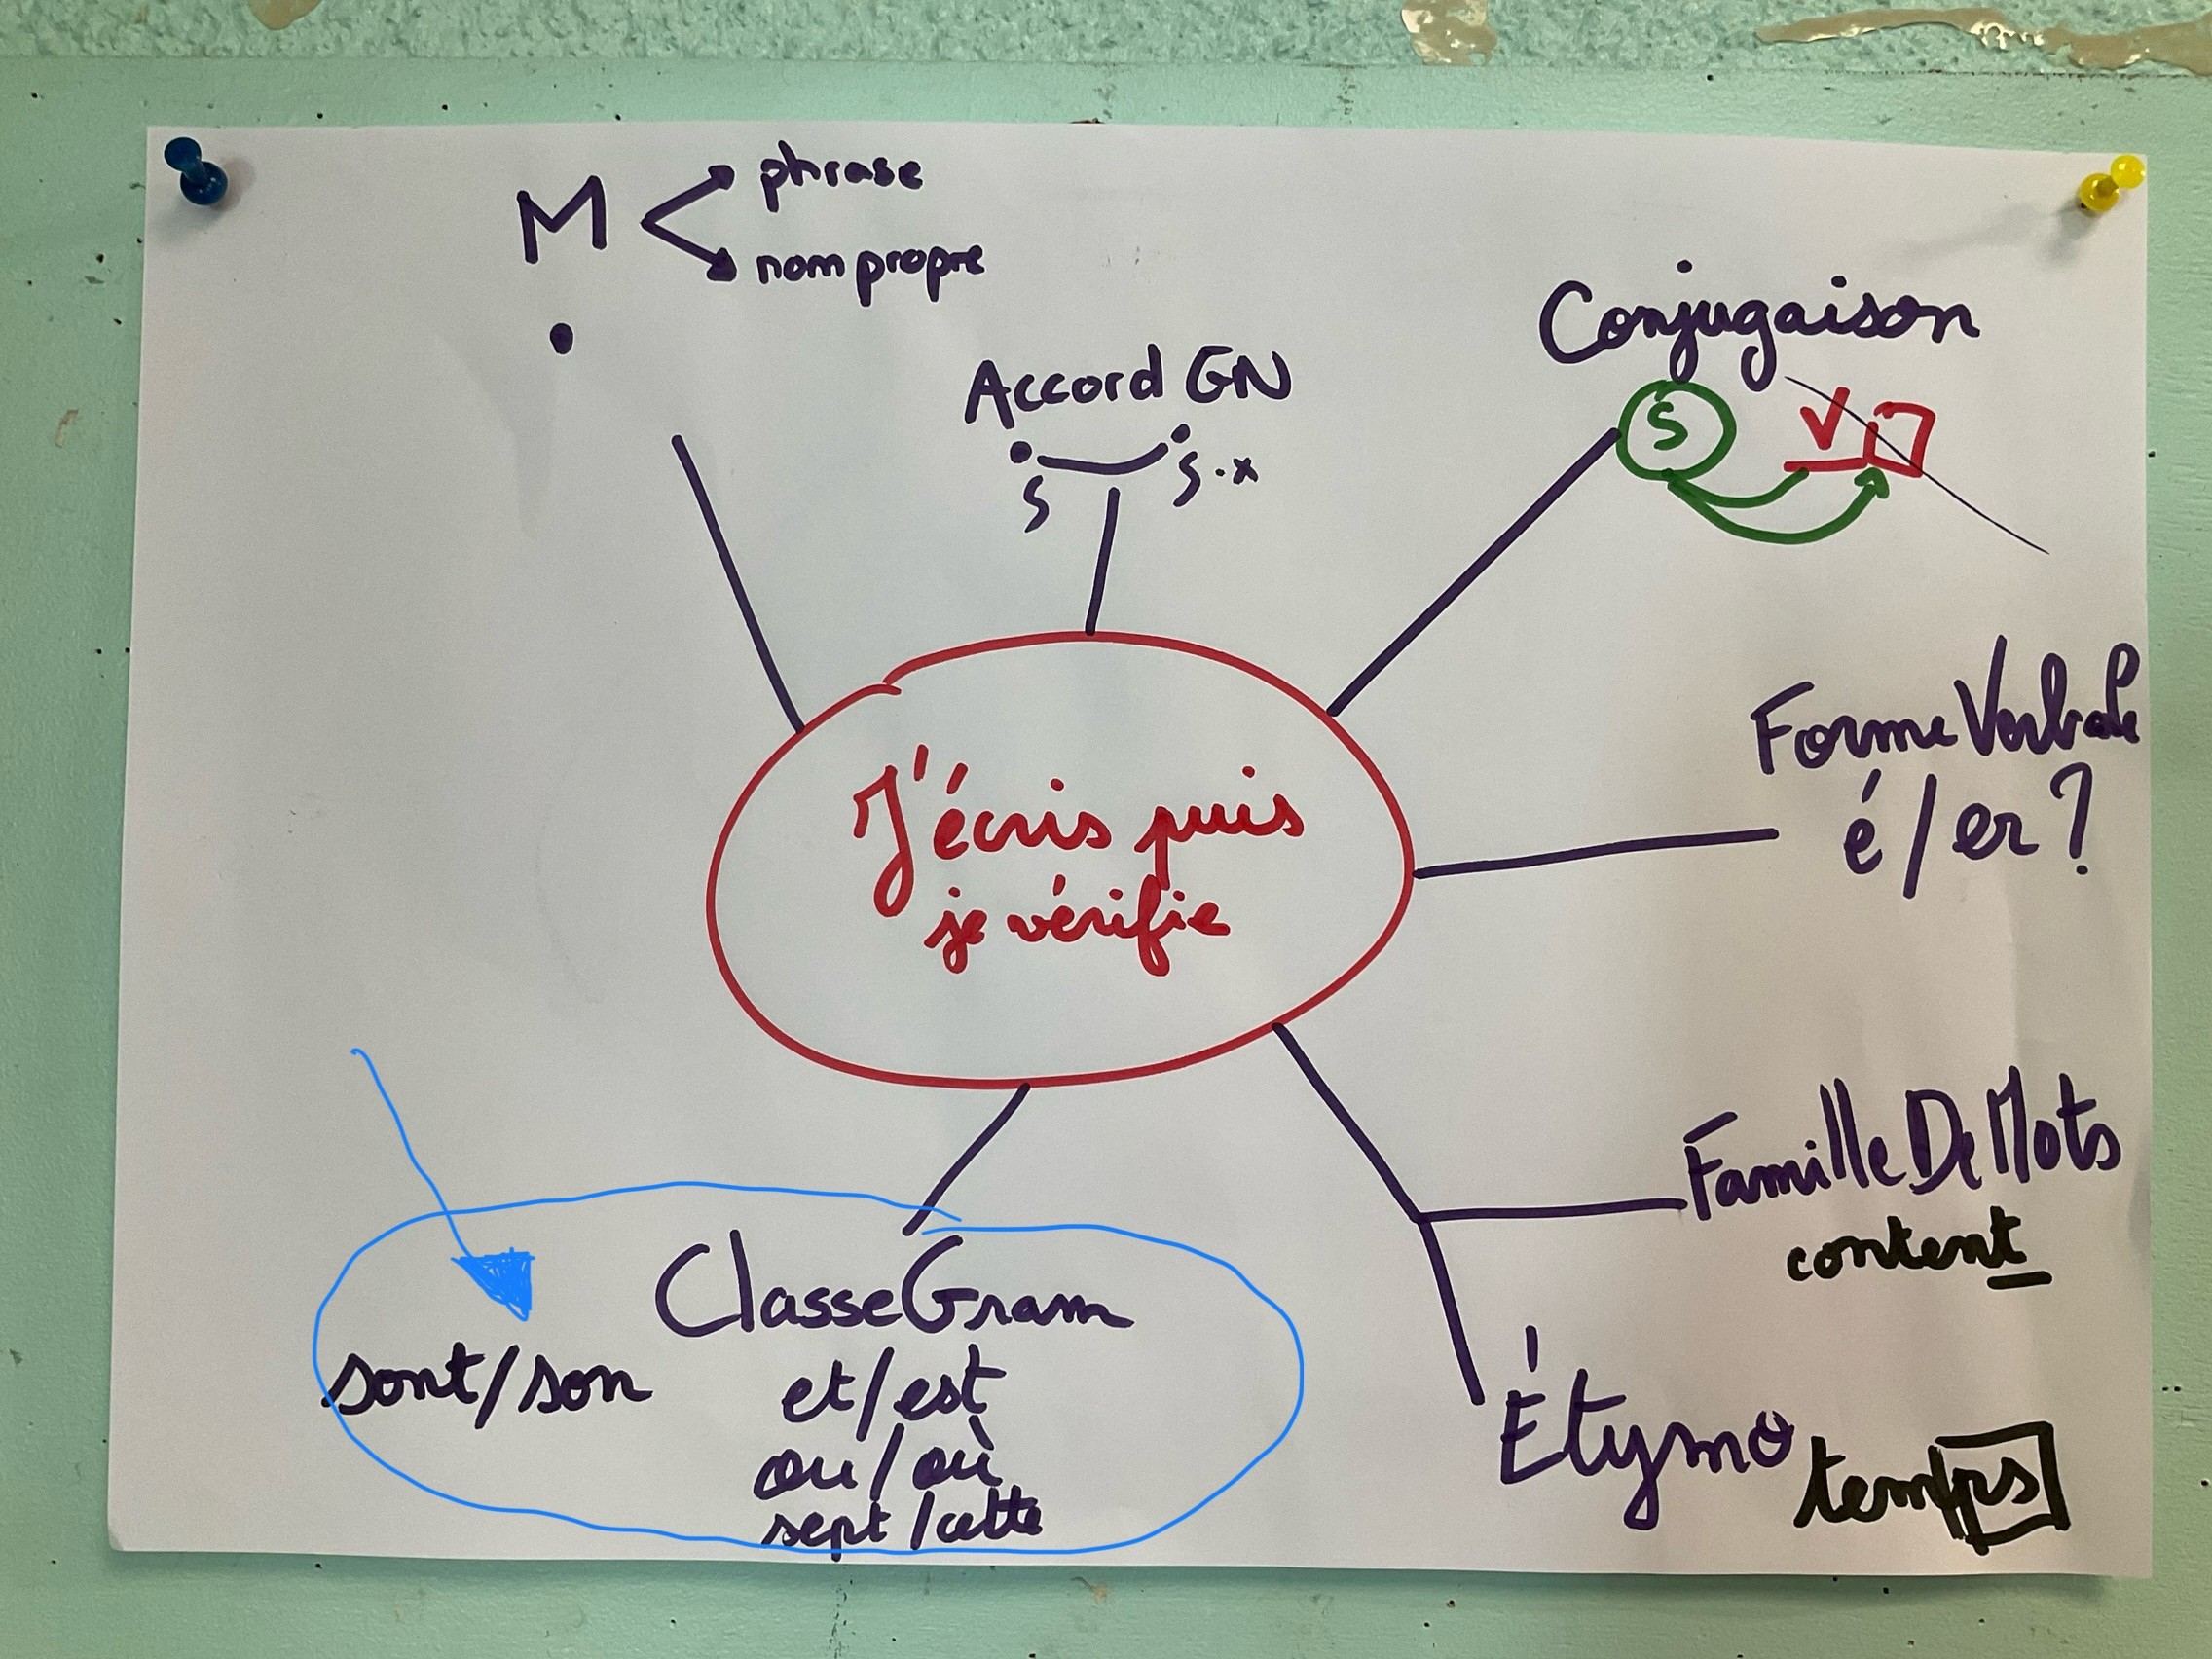 M
phrase
nom propre
Accord GN
s s.x
Conjugaison
S V
Forme Verbale
é/er?
J'écris puis
je vérifie
Famille De Mots
content
Étymo temps
Classe Gram
sont/son et/est
ou/où
sept/cette